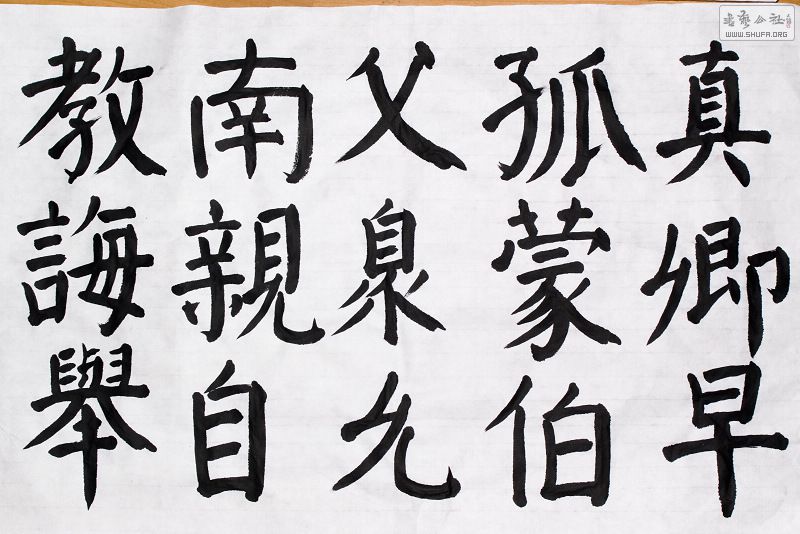 真卿早
孤蒙伯
父臮允
南親自
教誨舉
書藝公社
WWW.SHUFA.ORG